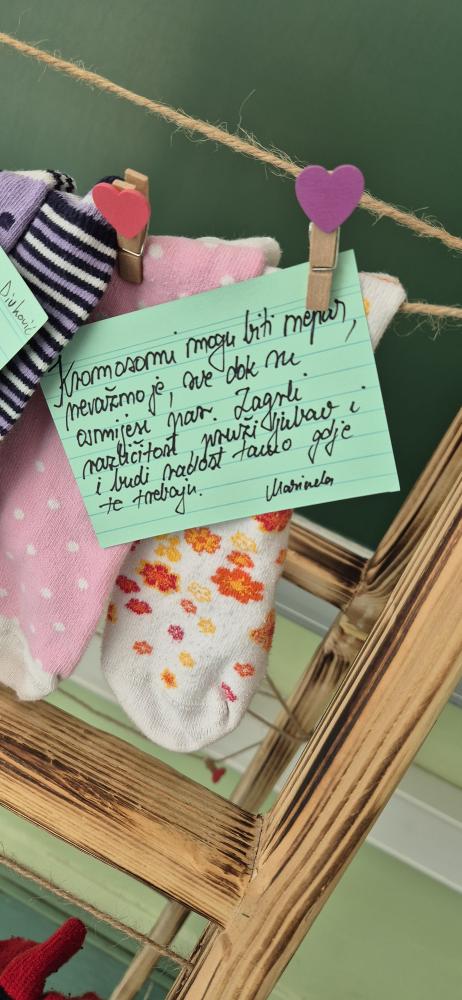 Divković
Kromosomi mogu biti nepar,
nevažno je, sve dok su
osmijesi par. Zagrli
različitost pruži ljubav i
i budi radost tamo gdje
te trebaju. Marinela